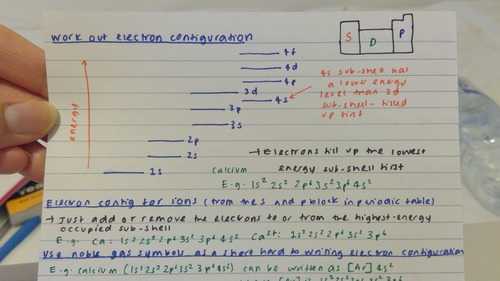 Work out electron configuration
4f
4d
4p
3d
4s
3p
3s
2p
2s
1s
energy
S D P
4s sub-shell has
a lower energy
level than 3d
sub-shell - filled
up first
→ Electrons fill up the lowest
energy sub-shell first
calcium
E.g. 1s² 2s² 2p⁶ 3s² 3p⁶ 4s²
Electron config for ions (from the S and p block in periodic table)
→ Just add or remove the electrons to or from the highest-energy
occupied sub-shell
E.g. Ca: 1s² 2s² 2p⁶ 3s² 3p⁶ 4s² Ca²⁺: 1s² 2s² 2p⁶ 3s² 3p⁶
Use noble gas symbols as a short hard to writing electron configuration
E.g. calcium (1s² 2s² 2p⁶ 3s² 3p⁶ 4s²) can be written as [Ar] 4s²